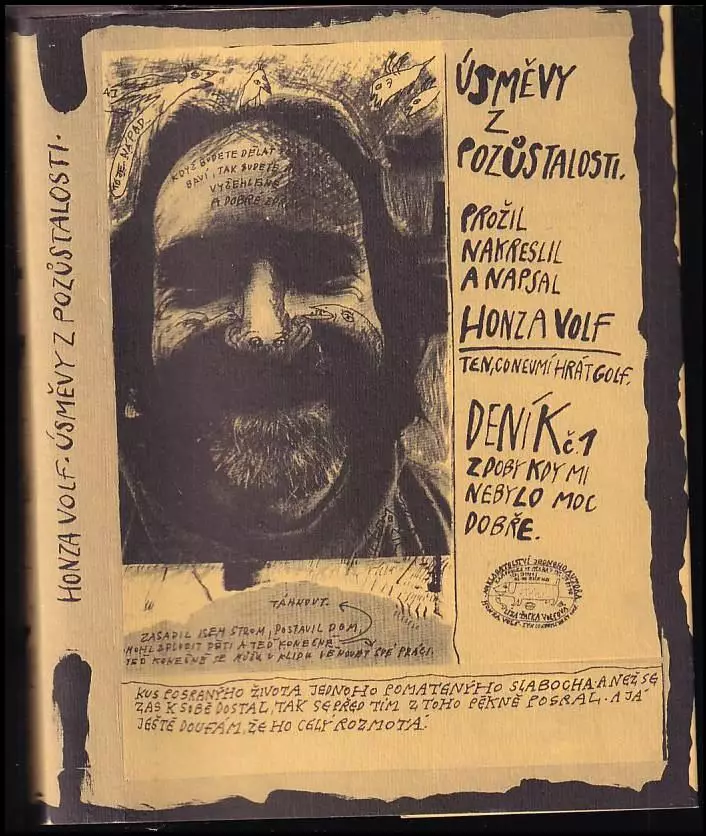 HONZA VOLF · ÚSMĚVY Z POZŮSTALOSTI.
ÚSMĚVY
Z
POZŮSTALOSTI.
PROŽIL
NAKRESLIL
A NAPSAL
HONZA VOLF
TEN, CO NEUMÍ HRÁT GOLF.
DENÍK č.1
Z DOBY KDY MI
NEBYLO MOC
DOBŘE.
NAKLADATELSTVÍ JEDNOHO AUTORA
NÁPAD
KDYŽ BUDETE DĚLAT
BAVÍ, TAK BUDETE
VYŽEHLENÉ
A DOBŘE
TÁHNOUT.
ZASADIL JSEM STROM, POSTAVIL DŮM,
MOHL SPLODIT DĚTI A TEĎ KONEČNĚ
TEĎ KONEČNĚ SE MŮŽU V KLIDU VĚNOVAT SVÉ PRÁCI.
KUS POSRANÝHO ŽIVOTA JEDNOHO POMATENÝHO SLABOCHA. A NEŽ SE
ZAS K SOBĚ DOSTAL, TAK SE PŘED TÍM Z TOHO PĚKNĚ POSRAL. A JÁ
JEŠTĚ DOUFÁM, ŽE HO CELÝ ROZMOTÁ.